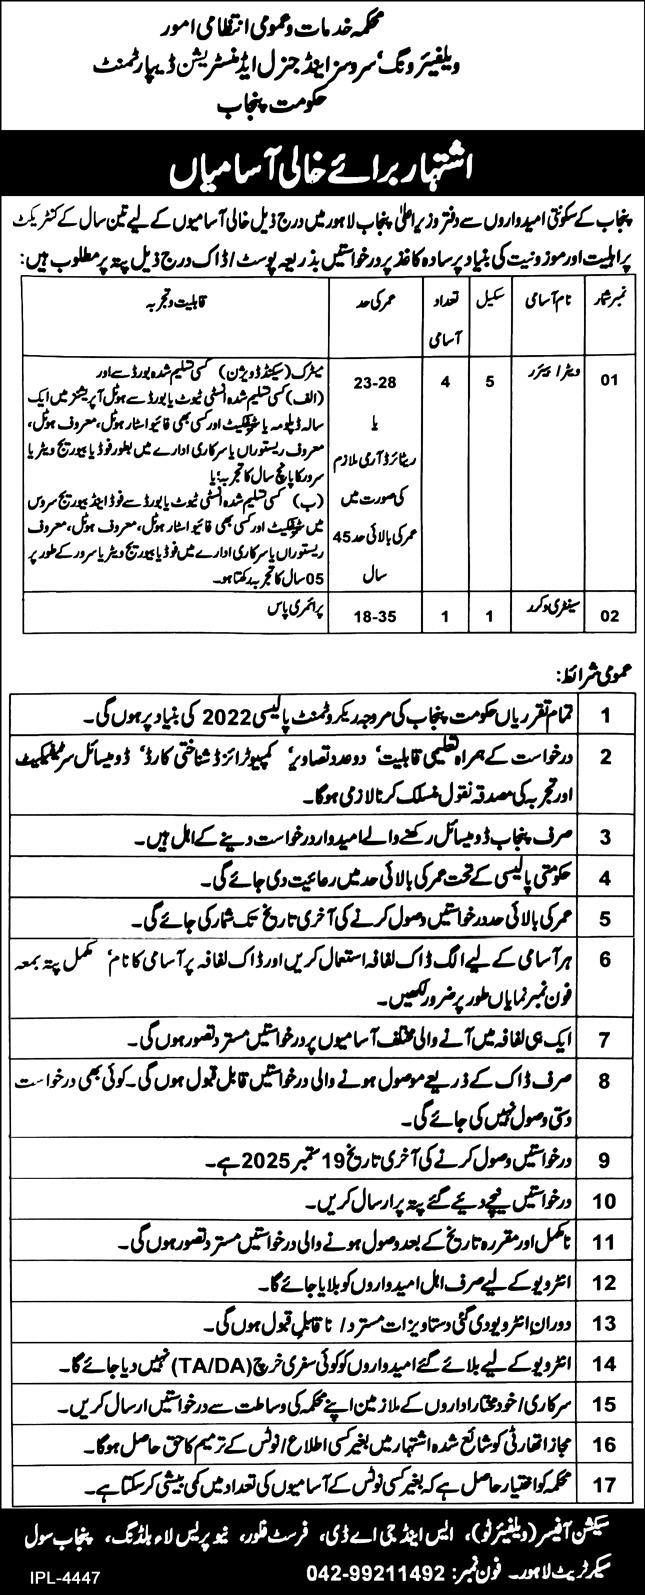 محکمہ خدمات و عمومی انتظامی امور
ویلفیئر ونگ، سروسز اینڈ جنرل ایڈمنسٹریشن ڈیپارٹمنٹ
حکومت پنجاب
اشتہار برائے خالی آسامیاں
پنجاب کے سکونتی امیدواروں سے دفتر وزیر اعلیٰ پنجاب لاہور میں درج ذیل خالی آسامیوں کے لیے تین سال کے کنٹریکٹ
پر اہلیت اور موزونیت کی بنیاد پر سادہ کاغذ پر درخواستیں بذریعہ پوسٹ/ ڈاک درج ذیل پتہ پر مطلوب ہیں:
نمبر شمار نام آسامی سکیل تعداد آسامی عمر کی حد قابلیت و تجربہ
01 ویٹر/ بیئرر 5 4 23-28
یا
ریٹائرڈ آرمی ملازم
کی صورت میں
عمر کی بالائی حد 45
سال
میٹرک (سیکنڈ ڈویژن) کسی تسلیم شدہ بورڈ سے اور
(الف) کسی تسلیم شدہ انسٹی ٹیوٹ یا بورڈ سے ہوٹل آپریشنز میں ایک
سالہ ڈپلومہ یا سرٹیفکیٹ اور کسی بھی فائیو اسٹار ہوٹل، معروف ہوٹل،
معروف ریستوراں یا سرکاری ادارے میں بطور فوڈ یا بیوریج ویٹر یا
سرور کا پانچ سال کا تجربہ؛ یا
(ب) کسی تسلیم شدہ انسٹی ٹیوٹ یا بورڈ سے فوڈ اینڈ بیوریج سروس
میں سرٹیفکیٹ اور کسی بھی فائیو اسٹار ہوٹل، معروف ہوٹل، معروف
ریستوراں یا سرکاری ادارے میں فوڈ یا بیوریج ویٹر یا سرور کے طور پر
05 سال کا تجربہ رکھتا ہو۔
02 سینٹری ورکر 1 1 18-35 پرائمری پاس
عمومی شرائط:
1 تمام تقرریاں حکومت پنجاب کی مروجہ ریکروٹمنٹ پالیسی 2022 کی بنیاد پر ہوں گی۔
2 درخواست کے ہمراہ تعلیمی قابلیت، دو عدد تصاویر، کمپیوٹرائزڈ شناختی کارڈ، ڈومیسائل سرٹیفکیٹ
اور تجربہ کی مصدقہ نقول منسلک کرنا لازمی ہوگا۔
3 صرف پنجاب ڈومیسائل رکھنے والے امیدوار درخواست دینے کے اہل ہیں۔
4 حکومتی پالیسی کے تحت عمر کی بالائی حد میں رعایت دی جائے گی۔
5 عمر کی بالائی حد درخواستیں وصول کرنے کی آخری تاریخ تک شمار کی جائے گی۔
6 ہر آسامی کے لیے الگ ڈاک لفافہ استعمال کریں اور ڈاک لفافہ پر آسامی کا نام، مکمل پتہ بمعہ
فون نمبر نمایاں طور پر ضرور لکھیں۔
7 ایک ہی لفافہ میں آنے والی مختلف آسامیوں پر درخواستیں مسترد تصور ہوں گی۔
8 صرف ڈاک کے ذریعے موصول ہونے والی درخواستیں قابل قبول ہوں گی۔ کوئی بھی درخواست
دستی وصول نہیں کی جائے گی۔
9 درخواستیں وصول کرنے کی آخری تاریخ 19 ستمبر 2025 ہے۔
10 درخواستیں نیچے دیئے گئے پتہ پر ارسال کریں۔
11 نامکمل اور مقررہ تاریخ کے بعد وصول ہونے والی درخواستیں مسترد تصور ہوں گی۔
12 انٹرویو کے لیے صرف اہل امیدواروں کو بلایا جائے گا۔
13 دوران انٹرویو دی گئی دستاویزات مسترد/ ناقابل قبول ہوں گی۔
14 انٹرویو کے لیے بلائے گئے امیدواروں کو کوئی سفری خرچ (TA/DA) نہیں دیا جائے گا۔
15 سرکاری/ خود مختار اداروں کے ملازمین اپنے محکمہ کی وساطت سے درخواستیں ارسال کریں۔
16 مجاز اتھارٹی کو شائع شدہ اشتہار میں بغیر کسی اطلاع/ نوٹس کے ترمیم کا حق حاصل ہوگا۔
17 محکمہ کو اختیار حاصل ہے کہ بغیر کسی نوٹس کے آسامیوں کی تعداد میں کمی بیشی کر سکتا ہے۔
سیکشن آفیسر (ویلفیئر ٹو)، ایس اینڈ جی اے ڈی، فرسٹ فلور، نیو پریس لاء بلڈنگ، پنجاب سول
سیکرٹریٹ لاہور۔ فون نمبر: 042-99211492
IPL-4447